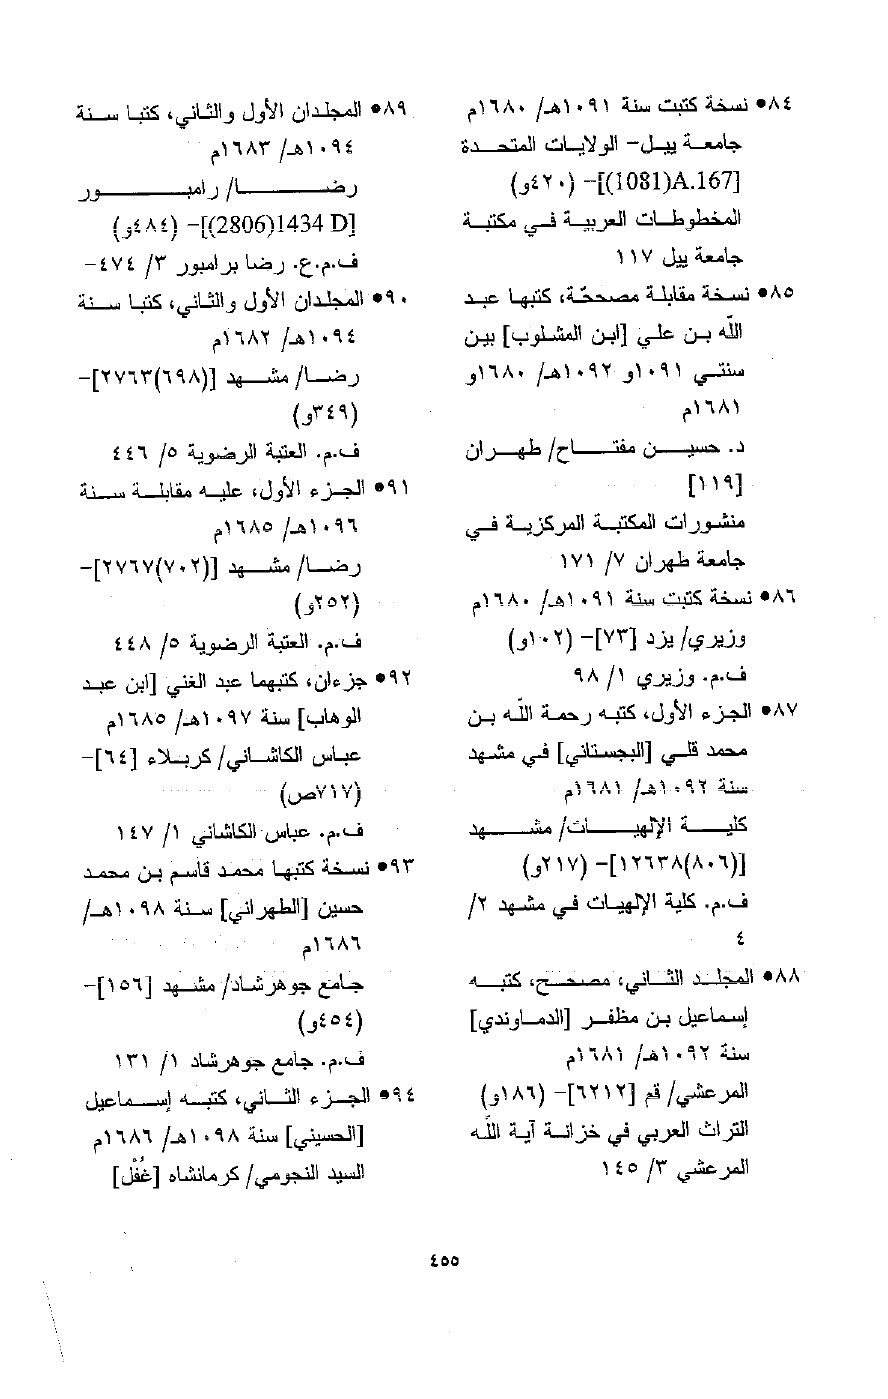 ٨٤• نسخة كتبت سنة ١٠٩١هـ/ ١٦٨٠م
جامعة ييل- الولايات المتحدة
[A.167(1081)]- (٤٢٠و)
المخطوطات العربية في مكتبة
جامعة ييل ١١٧
٨٥• نسخة مقابلة مصححّة، كتبها عبد
الله بن علي [ابن المشلوب] بين
سنتي ١٠٩١و ١٠٩٢هـ/ ١٦٨٠و
١٦٨١م
د. حسين مفتاح/ طهران
[١١٩]
منشورات المكتبة المركزية في
جامعة طهران ٧/ ١٧١
٨٦• نسخة كتبت سنة ١٠٩١هـ/ ١٦٨٠م
وزيري/ يزد [٧٣]- (١٠٢و)
ف.م. وزيري ١/ ٩٨
٨٧• الجزء الأول، كتبه رحمة الله بن
محمد قلي [البجستاني] في مشهد
سنة ١٠٩٢هـ/ ١٦٨١م
كلية الإلهيات/ مشهد
[(٨٠٦)١٢٦٣٨]- (٢١٧و)
ف.م. كلية الإلهيات في مشهد ٢/
٤
٨٨• المجلد الثاني، مصحح، كتبه
إسماعيل بن مظفر [الدماوندي]
سنة ١٠٩٢هـ/ ١٦٨١م
المرعشي/ قم [٦٢١٢]- (١٨٦و)
التراث العربي في خزانة آية الله
المرعشي ٣/ ١٤٥
٨٩• المجلدان الأول والثاني، كتبا سنة
١٠٩٤هـ/ ١٦٨٣م
رضا/ رامبور
[1434 D(2806)]- (٤٨٤و)
ف.م.ع. رضا برامبور ٣/ ٤٧٤-
٩٠• المجلدان الأول والثاني، كتبا سنة
١٠٩٤هـ/ ١٦٨٢م
رضا/ مشهد [(٦٩٨)٢٧٦٣]-
(٣٤٩و)
ف.م. العتبة الرضوية ٥/ ٤٤٦
٩١• الجزء الأول، عليه مقابلة سنة
١٠٩٦هـ/ ١٦٨٥م
رضا/ مشهد [(٧٠٢)٢٧٦٧]-
(٢٥٢و)
ف.م. العتبة الرضوية ٥/ ٤٤٨
٩٢• جزءان، كتبهما عبد الغني [ابن عبد
الوهاب] سنة ١٠٩٧هـ/ ١٦٨٥م
عباس الكاشاني/ كربلاء [٦٤]-
(٧١٧ص)
ف.م. عباس الكاشاني ١/ ١٤٧
٩٣• نسخة كتبها محمد قاسم بن محمد
حسين [الطهراني] سنة ١٠٩٨هـ/
١٦٨٦م
جامع جوهرشاد/ مشهد [١٥٦]-
(٤٥٤و)
ف.م. جامع جوهرشاد ١/ ١٣١
٩٤• الجزء الثاني، كتبه إسماعيل
[الحسيني] سنة ١٠٩٨هـ/ ١٦٨٦م
السيد النجومي/ كرمانشاه [غُفْل]
٤٥٥